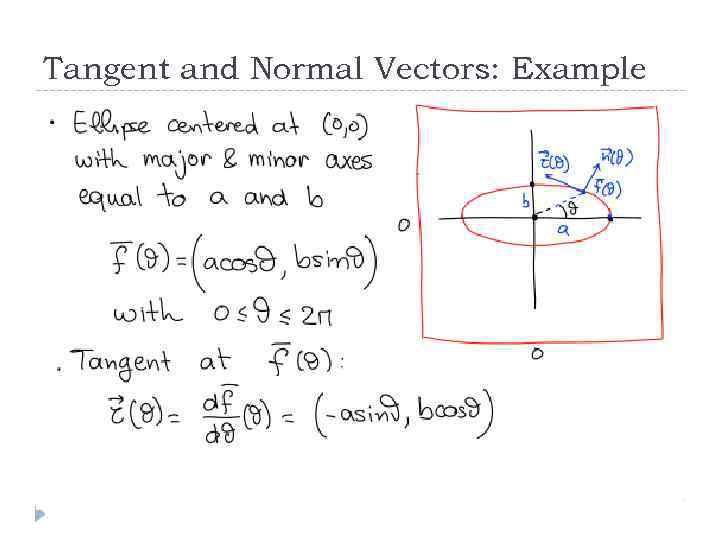 Tangent and Normal Vectors: Example
• Ellipse centered at (0,0)
with major & minor axes
equal to a and b
f̄(ϑ) = (acosϑ, bsinϑ)
with 0 ≤ ϑ ≤ 2π
. Tangent at f̄(ϑ):
τ⃗(ϑ) = df̄/dϑ (ϑ) = (-asinϑ, bcosϑ)
τ⃗(ϑ) n⃗(ϑ)
f̄(ϑ)
b ϑ
a
0
0